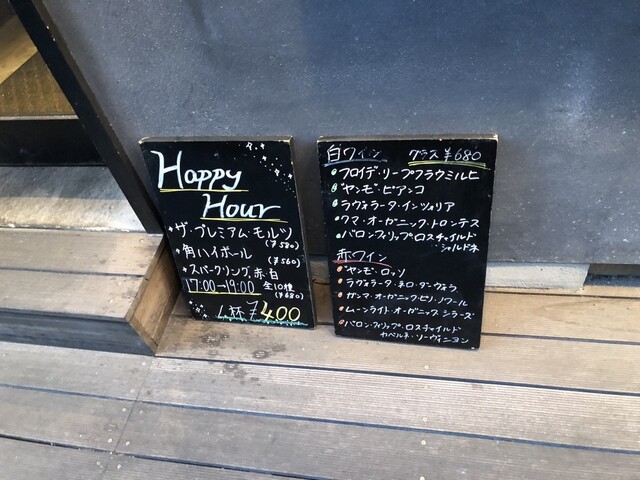 Happy
Hour
ザ・プレミアム・モルツ
(¥580)
角ハイボール
(¥560)
スパークリング、赤・白
17:00→19:00 全10種
(¥680)
1杯 ¥400
白ワイン グラス ¥680
フロイデ・リープフラウミルヒ
ヤンモ・ビアンコ
ラヴォラータ・インツォリア
クマ・オーガニック・トロンテス
バロン・フィリップ・ロスチャイルド
・シャルドネ
赤ワイン
ヤンモ・ロッソ
ラヴォラータ・ネロ・ダーヴォラ
クマ・オーガニック・ピノ・ノワール
ムーンライト・オーガニック シラーズ
バロン・フィリップ・ロスチャイルド
カベルネ・ソーヴィニヨン